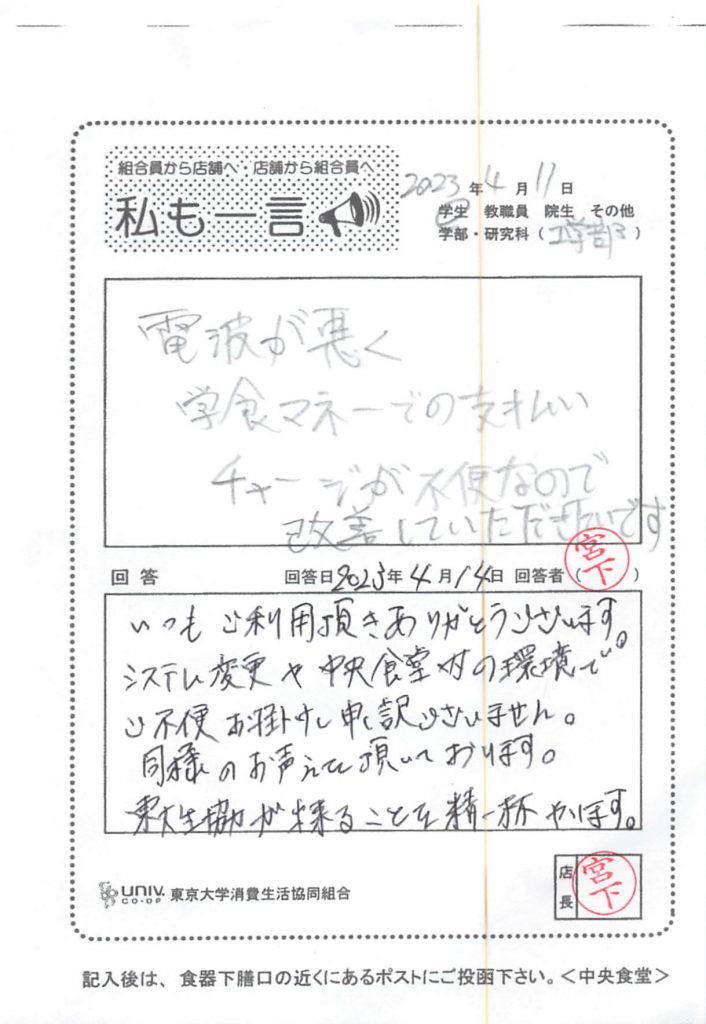 組合員から店舗へ・店舗から組合員へ
私も一言
2023年4月11日
学生 教職員 院生 その他
学部・研究科(工学部)
電波が悪く
学食マネーでの支払い
チャージが不便なので
改善していただきたいです
回答 回答日2023年4月14日 回答者(宮下)
いつもご利用頂きありがとうございます。
システム変更や中央食堂内の環境で
ご不便お掛けし申し訳ございません。
同様のお声も頂いております。
東大生協が出来ることを精一杯やります。
UNIV. CO-OP 東京大学消費生活協同組合
店長 宮下
記入後は、食器下膳口の近くにあるポストにご投函下さい。<中央食堂>